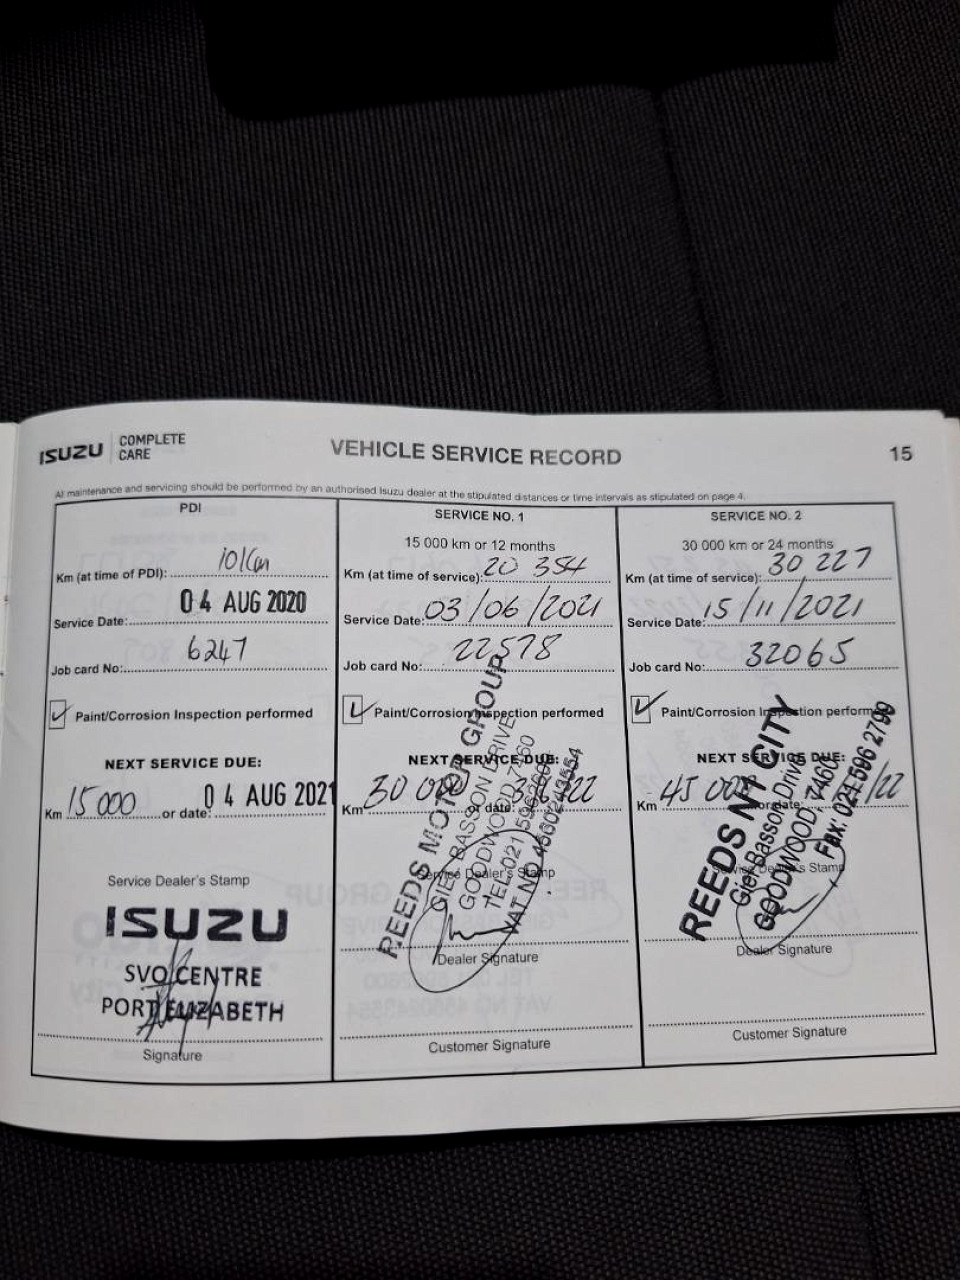 ISUZU COMPLETE CARE
VEHICLE SERVICE RECORD
15
All maintenance and servicing should be performed by an authorised Isuzu dealer at the stipulated distances or time intervals as stipulated on page 4.
PDI
Km (at time of PDI): 10 Km
Service Date: 04 AUG 2020
Job card No: 6247
Paint/Corrosion Inspection performed
NEXT SERVICE DUE:
Km 15 000 or date: 04 AUG 2021
Service Dealer's Stamp
ISUZU
SVO CENTRE
PORT ELIZABETH
Signature
SERVICE NO. 1
15 000 km or 12 months
Km (at time of service): 20 354
Service Date: 03/06/2021
Job card No: 22578
Paint/Corrosion Inspection performed
NEXT SERVICE DUE:
Km 30 000 or date:
REEDS MOTOR GROUP
GIEL BASSON DRIVE
GOODWOOD, 7460
TEL:021 596
VAT NO
Service Dealer's Stamp
Dealer Signature
Customer Signature
SERVICE NO. 2
30 000 km or 24 months
Km (at time of service): 30 227
Service Date: 15/11/2021
Job card No: 32065
Paint/Corrosion Inspection performed
NEXT SERVICE DUE:
Km 45 000 or date: /22
REEDS N1 CITY
Giel Basson Drive
GOODWOOD, 7460
Fax: 021 596 2799
Service Dealer's Stamp
Dealer Signature
Customer Signature